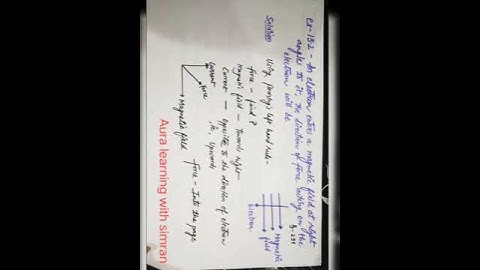 Ex-13.2 - An electron enters a magnetic field at right
angles to it. The direction of force acting on the
electron will be
Solution
Using fleming's left hand rule-
Force - find?
Magnetic field - Towards right
Current - opposite to the direction of electron
ie, upwards
Magnetic
field
Electron
Current
force
Magnetic field
force - Into the page
Aura learning with simran